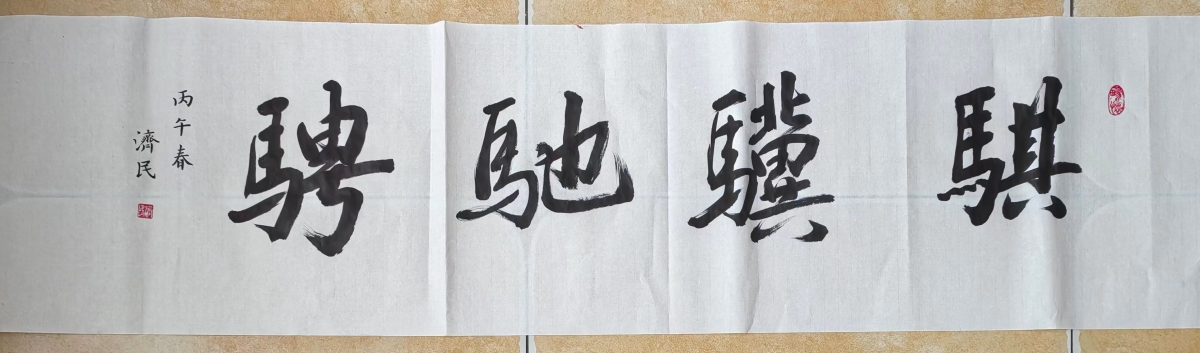 騏驥馳騁
丙午春
濟民